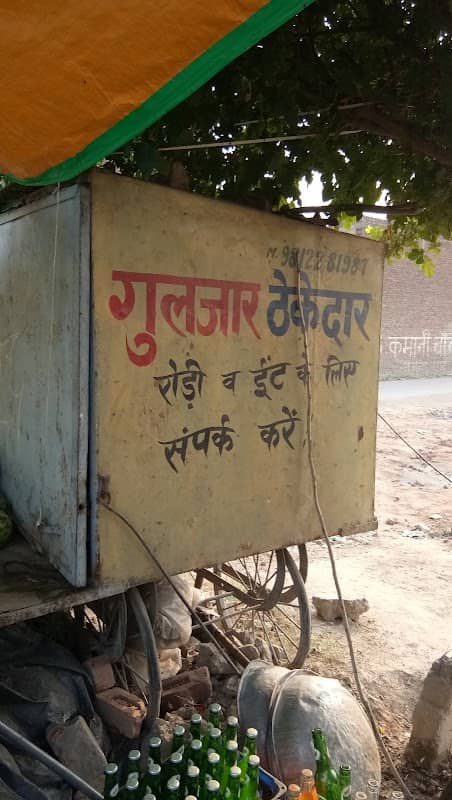 M. 98122 81987
गुलजार ठेकेदार
रोड़ी व ईंट के लिए
संपर्क करें
कमानी